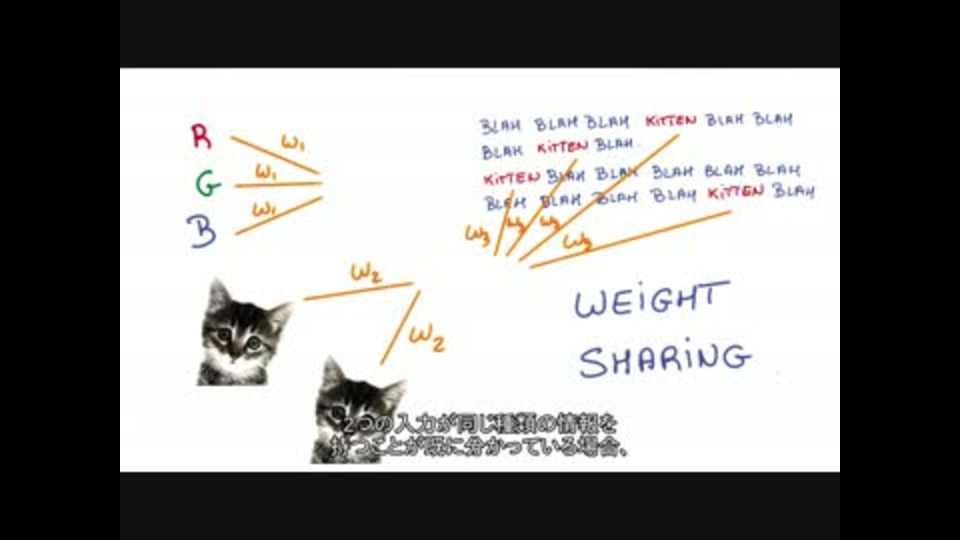 R
G
B
W₁
W₁
W₁
BLAH BLAH BLAH KITTEN BLAH BLAH
BLAH KITTEN BLAH.
KITTEN BLAH BLAH BLAH BLAH BLAH
BLAH BLAH BLAH BLAH KITTEN BLAH
W₃ W₃ W₃ W₃
W₂
W₂
WEIGHT
SHARING
2つの入力が同じ種類の情報を
持つことが既に分かっている場合、